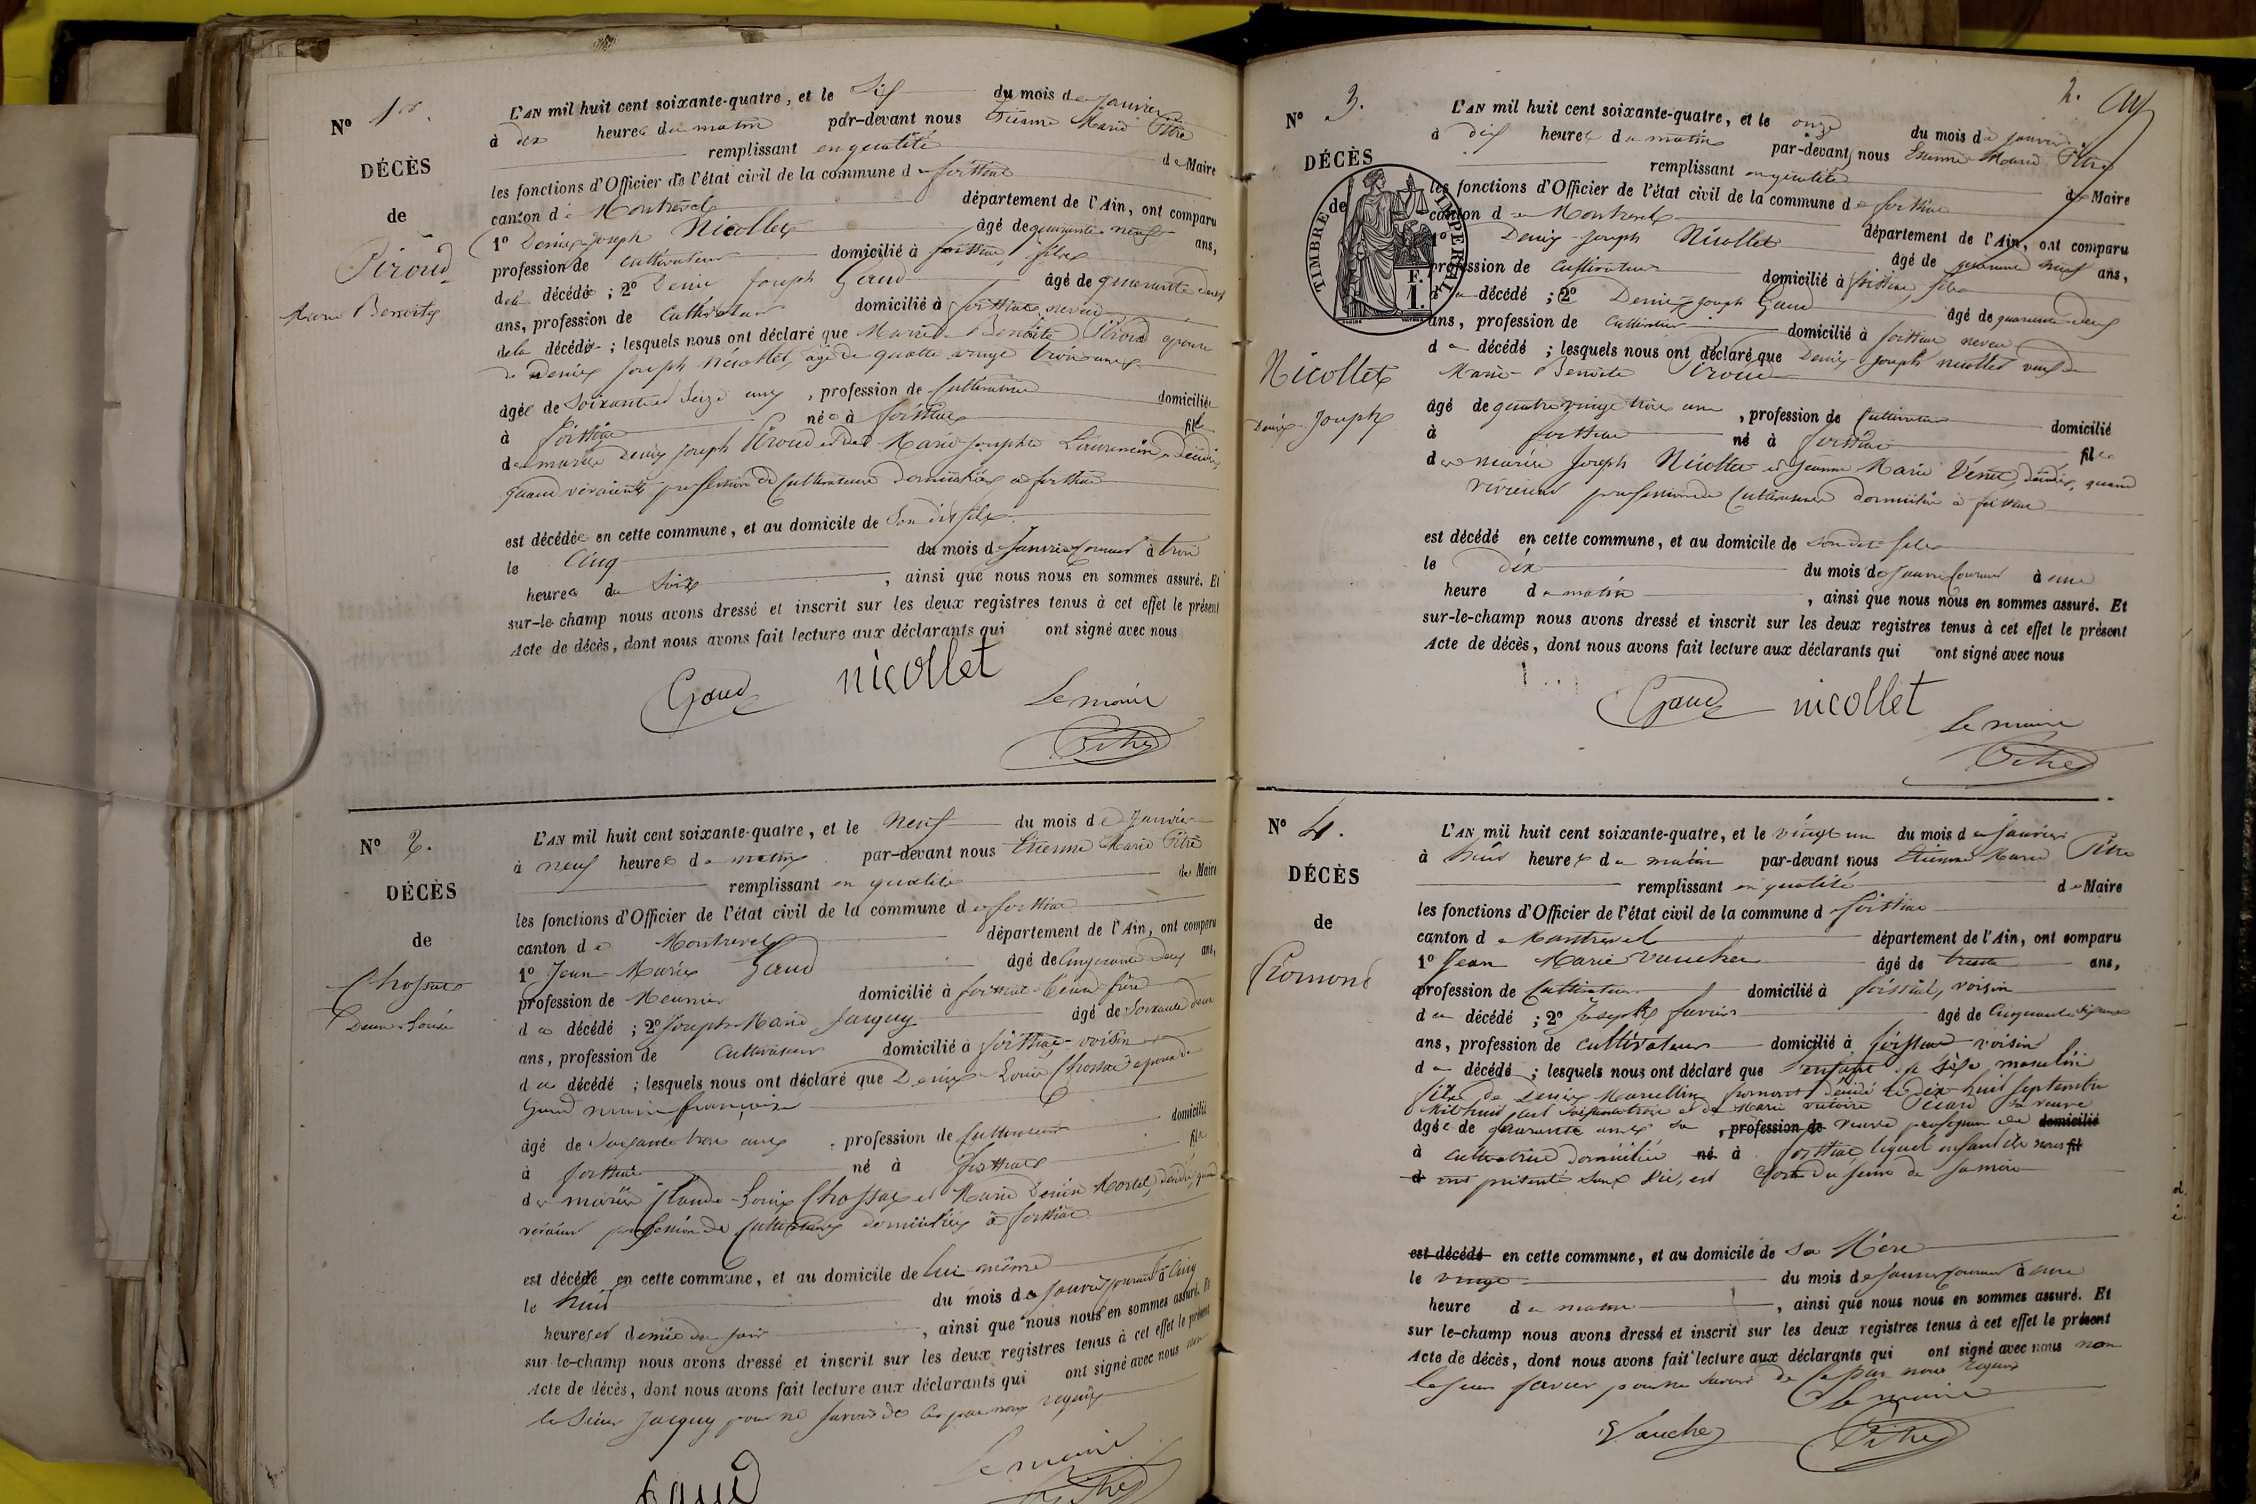 N° 1er.
DÉCÈS
de
Piroud
Marie Benoite
L'AN mil huit cent soixante-quatre, et le Six du mois de Janvier
à dix heures du matin par-devant nous Etienne Marie Pitre
remplissant en qualité de Maire
les fonctions d'Officier de l'état civil de la commune de foissiat
canton de Montrevel département de l'Ain, ont comparu
1° Denis-Joseph Nicollet âgé de quarante neuf ans,
profession de cultivateur domicilié à foissiat, fils
de la décédée ; 2° Denis Joseph Gaud âgé de quarante deux
ans, profession de Cultivateur domicilié à foissiat neveu
de la décédée ; lesquels nous ont déclaré que Marie Benoite Piroud epouse
de Denis Joseph Nicollet, âgé de quatre vingt trois ans
âgée de Soixante et Seize ans, profession de Cultivatrice domiciliée
à foissiat née à foissiat fille
de mariés Denis Joseph Piroud et de Marie Josephte décédés
quand vivaient profession de Cultivateurs domiciliés à foissiat
est décédée en cette commune, et au domicile de Son dit fils
le Cinq du mois de Janvier courant à trois
heures du Soir, ainsi que nous nous en sommes assuré. Et
sur-le-champ nous avons dressé et inscrit sur les deux registres tenus à cet effet le présent
Acte de décès, dont nous avons fait lecture aux déclarants qui ont signé avec nous
Gaud nicollet Le maire
Pitre
N° 2.
DÉCÈS
de
Chossat
Denis-Louis
L'AN mil huit cent soixante-quatre, et le Neuf du mois de Janvier
à neuf heures du matin par-devant nous Etienne Marie Pitre
remplissant en qualité de Maire
les fonctions d'Officier de l'état civil de la commune de foissiat
canton de Montrevel département de l'Ain, ont comparu
1° Jean-Marie Gaud âgé de Cinquante deux ans,
profession de Meunier domicilié à foissiat Beau frère
du décédé ; 2° Joseph-Marie Jacquy âgé de Soixante deux
ans, profession de Cultivateur domicilié à foissiat voisin
du décédé ; lesquels nous ont déclaré que Denis-Louis Chossat epoux de
Gaud marie françoise
âgé de Soixante trois ans, profession de Cultivateur domicilié
à foissiat né à foissiat fils
de mariés Claude-Louis Chossat et Marie Denise Morel, décédés, quand
vivaient profession de Cultivateurs domiciliés à foissiat
est décédé en cette commune, et au domicile de lui même
le huit du mois de Janvier courant à Cinq
heures et demie du soir, ainsi que nous nous en sommes assuré. Et
sur-le-champ nous avons dressé et inscrit sur les deux registres tenus à cet effet le présent
Acte de décès, dont nous avons fait lecture aux déclarants qui ont signé avec nous non
le Sieur Jacquy pour ne savoir de ce par nous requis
Le maire
Gaud Pitre
2.
N° 3.
DÉCÈS
de
TIMBRE IMPERIAL
F.
1.
Nicollet
Denis-Joseph
L'AN mil huit cent soixante-quatre, et le onze du mois de Janvier
à dix heures du matin par-devant nous Etienne Marie Pitre
remplissant en qualité de Maire
les fonctions d'Officier de l'état civil de la commune de foissiat
canton de Montrevel département de l'Ain, ont comparu
1° Denis-Joseph Nicollet âgé de quarante neuf ans,
profession de Cultivateur domicilié à foissiat, fils
du décédé ; 2° Denis Joseph Gaud âgé de quarante deux
ans, profession de Cultivateur domicilié à foissiat neveu
du décédé ; lesquels nous ont déclaré que Denis-Joseph nicollet veuf de
Marie-Benoite Piroud
âgé de quatre vingt trois ans, profession de Cultivateur domicilié
à foissiat né à foissiat fils
de mariés Joseph Nicollet et Jeanne Marie décédés, quand
vivaient profession de Cultivateurs domiciliés à foissiat
est décédé en cette commune, et au domicile de son dit fils
le dix du mois de Janvier courant à une
heure du matin, ainsi que nous nous en sommes assuré. Et
sur-le-champ nous avons dressé et inscrit sur les deux registres tenus à cet effet le présent
Acte de décès, dont nous avons fait lecture aux déclarants qui ont signé avec nous
Gaud nicollet Le maire
Pitre
N° 4.
DÉCÈS
de
Promond
L'AN mil huit cent soixante-quatre, et le vingt un du mois de Janvier
à huit heures du matin par-devant nous Etienne Marie Pitre
remplissant en qualité de Maire
les fonctions d'Officier de l'état civil de la commune de foissiat
canton de Montrevel département de l'Ain, ont comparu
1° Jean Marie Vaucher âgé de trente ans,
profession de Cultivateur domicilié à foissiat, voisin
du décédé ; 2° Joseph favier âgé de Cinquante
ans, profession de cultivateur domicilié à foissiat voisin
du décédé ; lesquels nous ont déclaré que l'enfant de sèxe masculin
fils de Denis Marcellin décédé le dix huit septembre
mil huit cent soixante trois et de Marie victoire sa veuve
âgée de quarante ans sa profession de veuve profession de domicilié
à cultivatrice domiciliée né à foissiat lequel enfant ils nous fil
d ont présenté sans vie, est sorti du sein de sa mère
est décédé en cette commune, et au domicile de sa Mère
le vingt du mois de Janvier courant à une
heure du matin, ainsi que nous nous en sommes assuré. Et
sur le-champ nous avons dressé et inscrit sur les deux registres tenus à cet effet le présent
Acte de décès, dont nous avons fait lecture aux déclarants qui ont signé avec nous non
le sieur favier pour ne savoir de ce par nous requis
Le maire
Vaucher Pitre